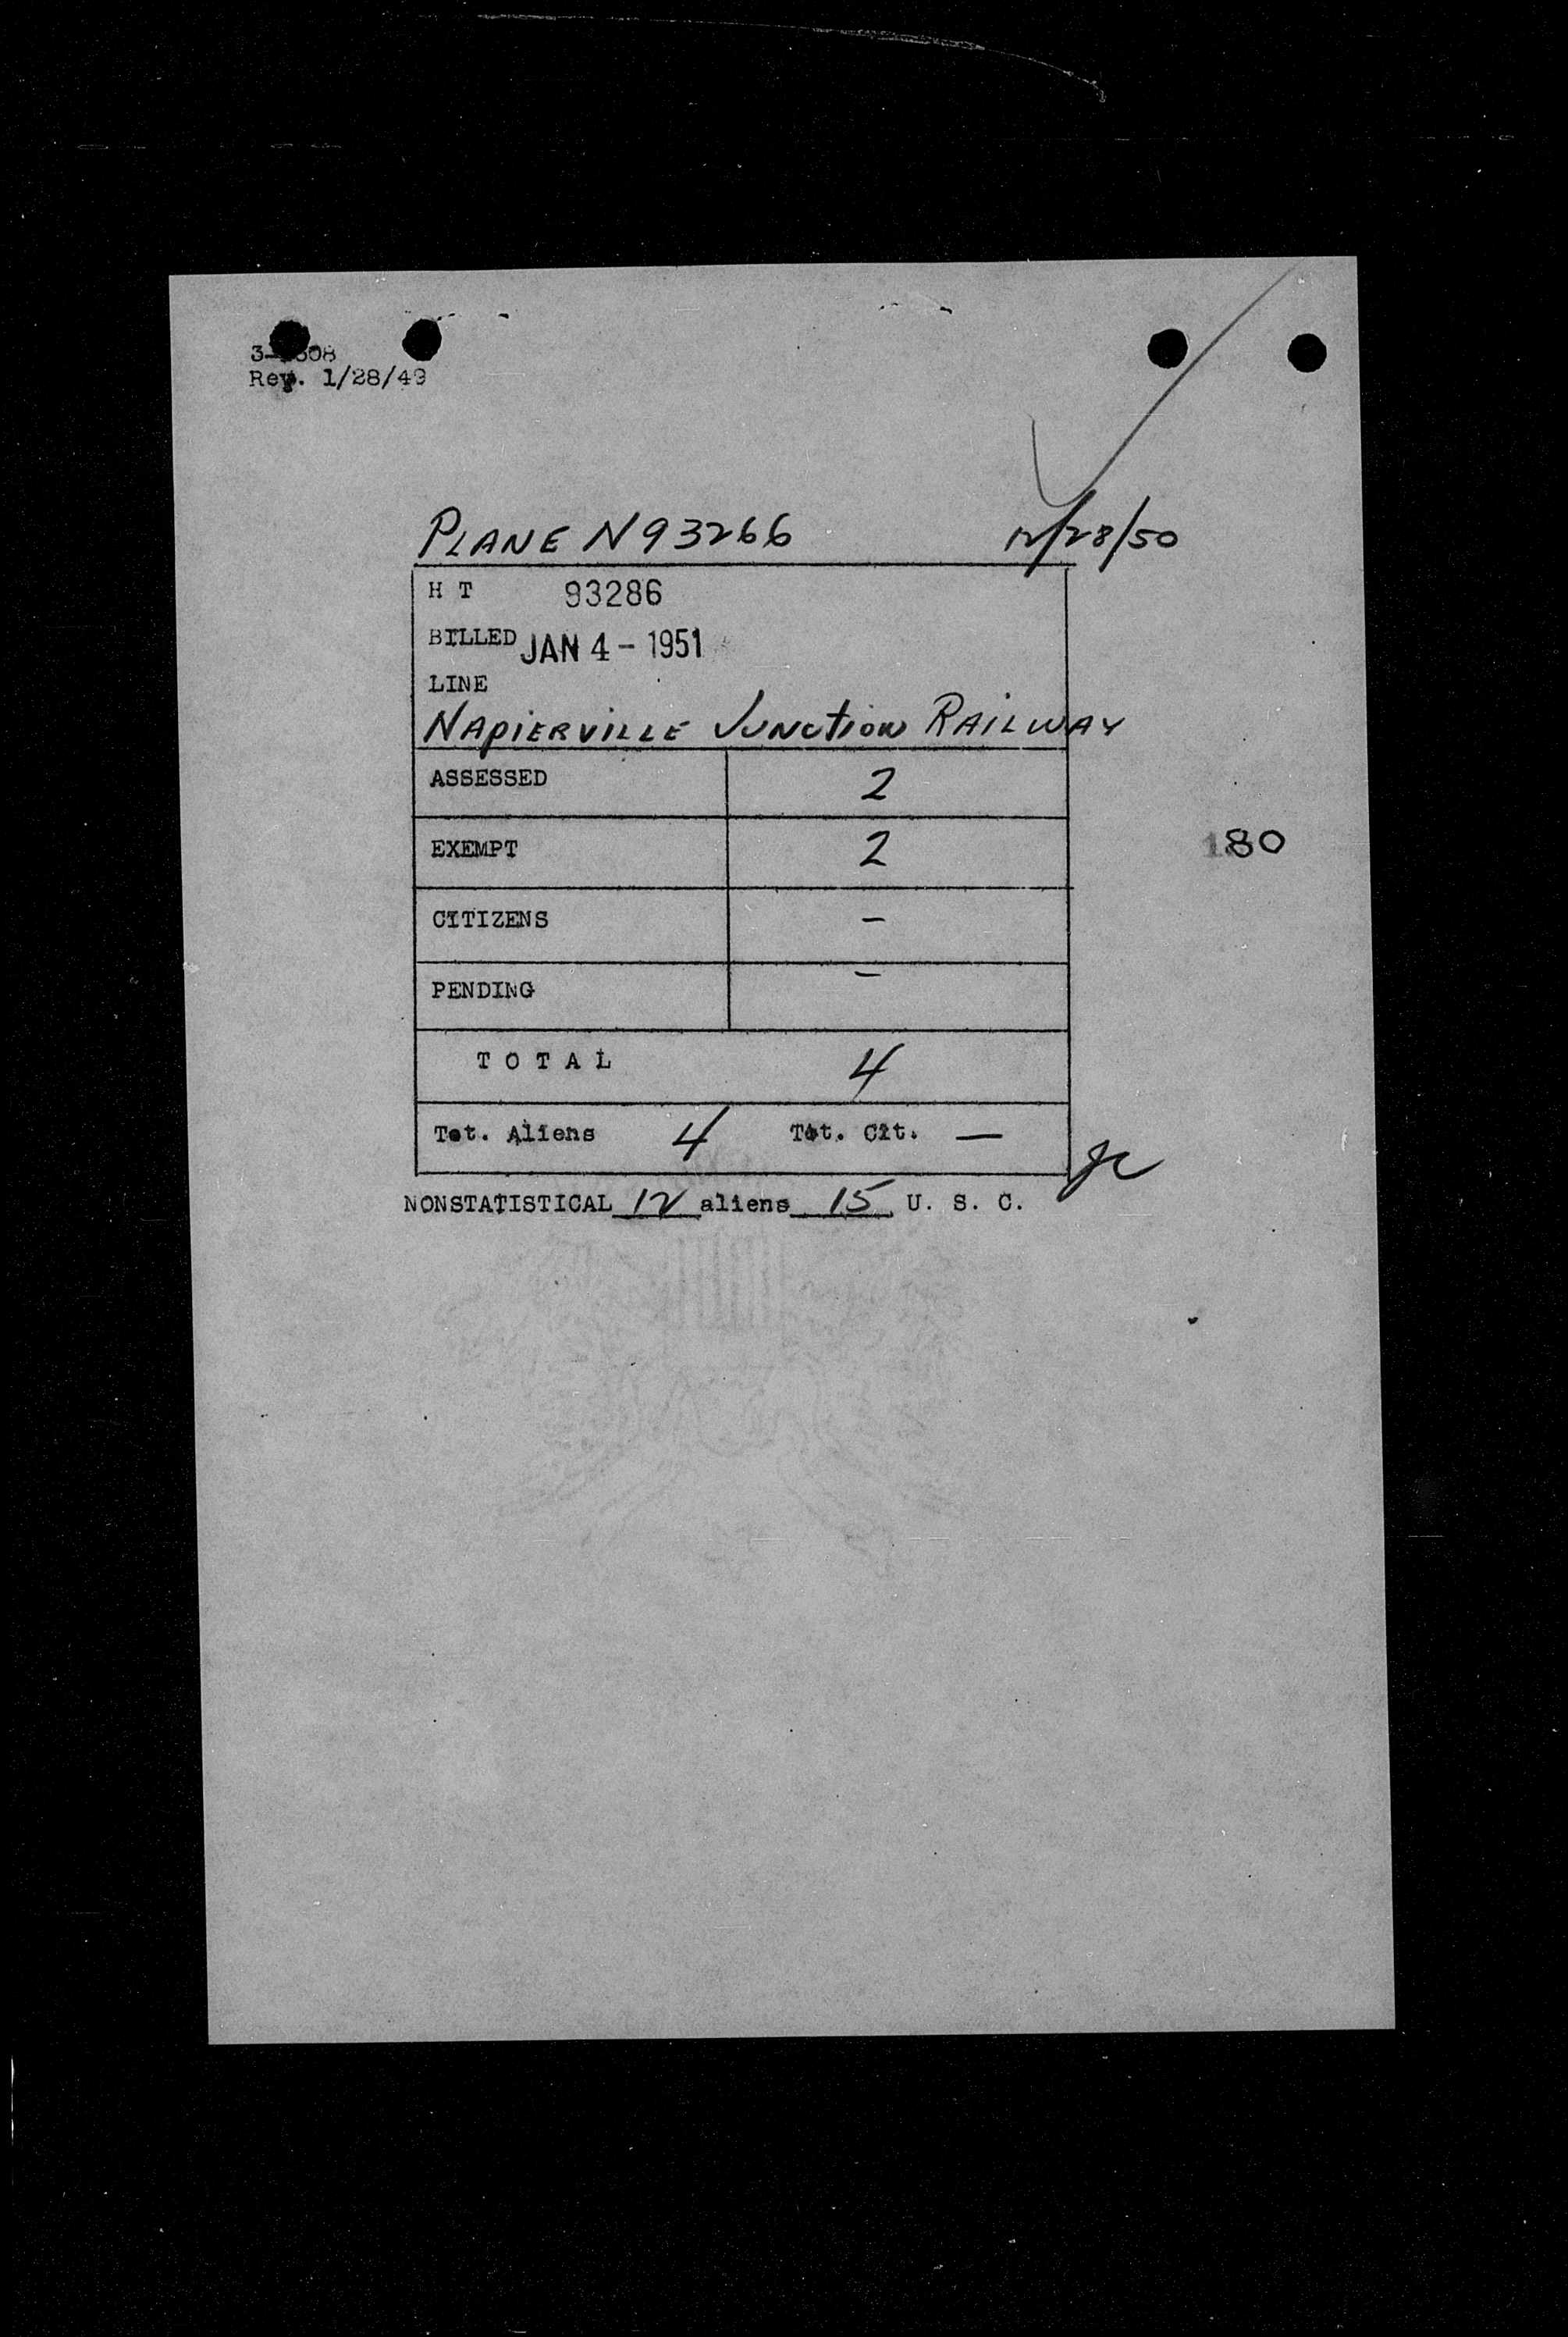 Rev. 1/28/49
PLANE N93266 12/28/50
H T 93286
BILLED JAN 4 - 1951
LINE
NAPIERVILLE JUNCTION RAILWAY
ASSESSED 2
EXEMPT 2
180
CITIZENS -
PENDING -
T O T A L 4
Tot. Aliens 4 Tot. Cit. —
NONSTATISTICAL 12 aliens 15 U. S. C.